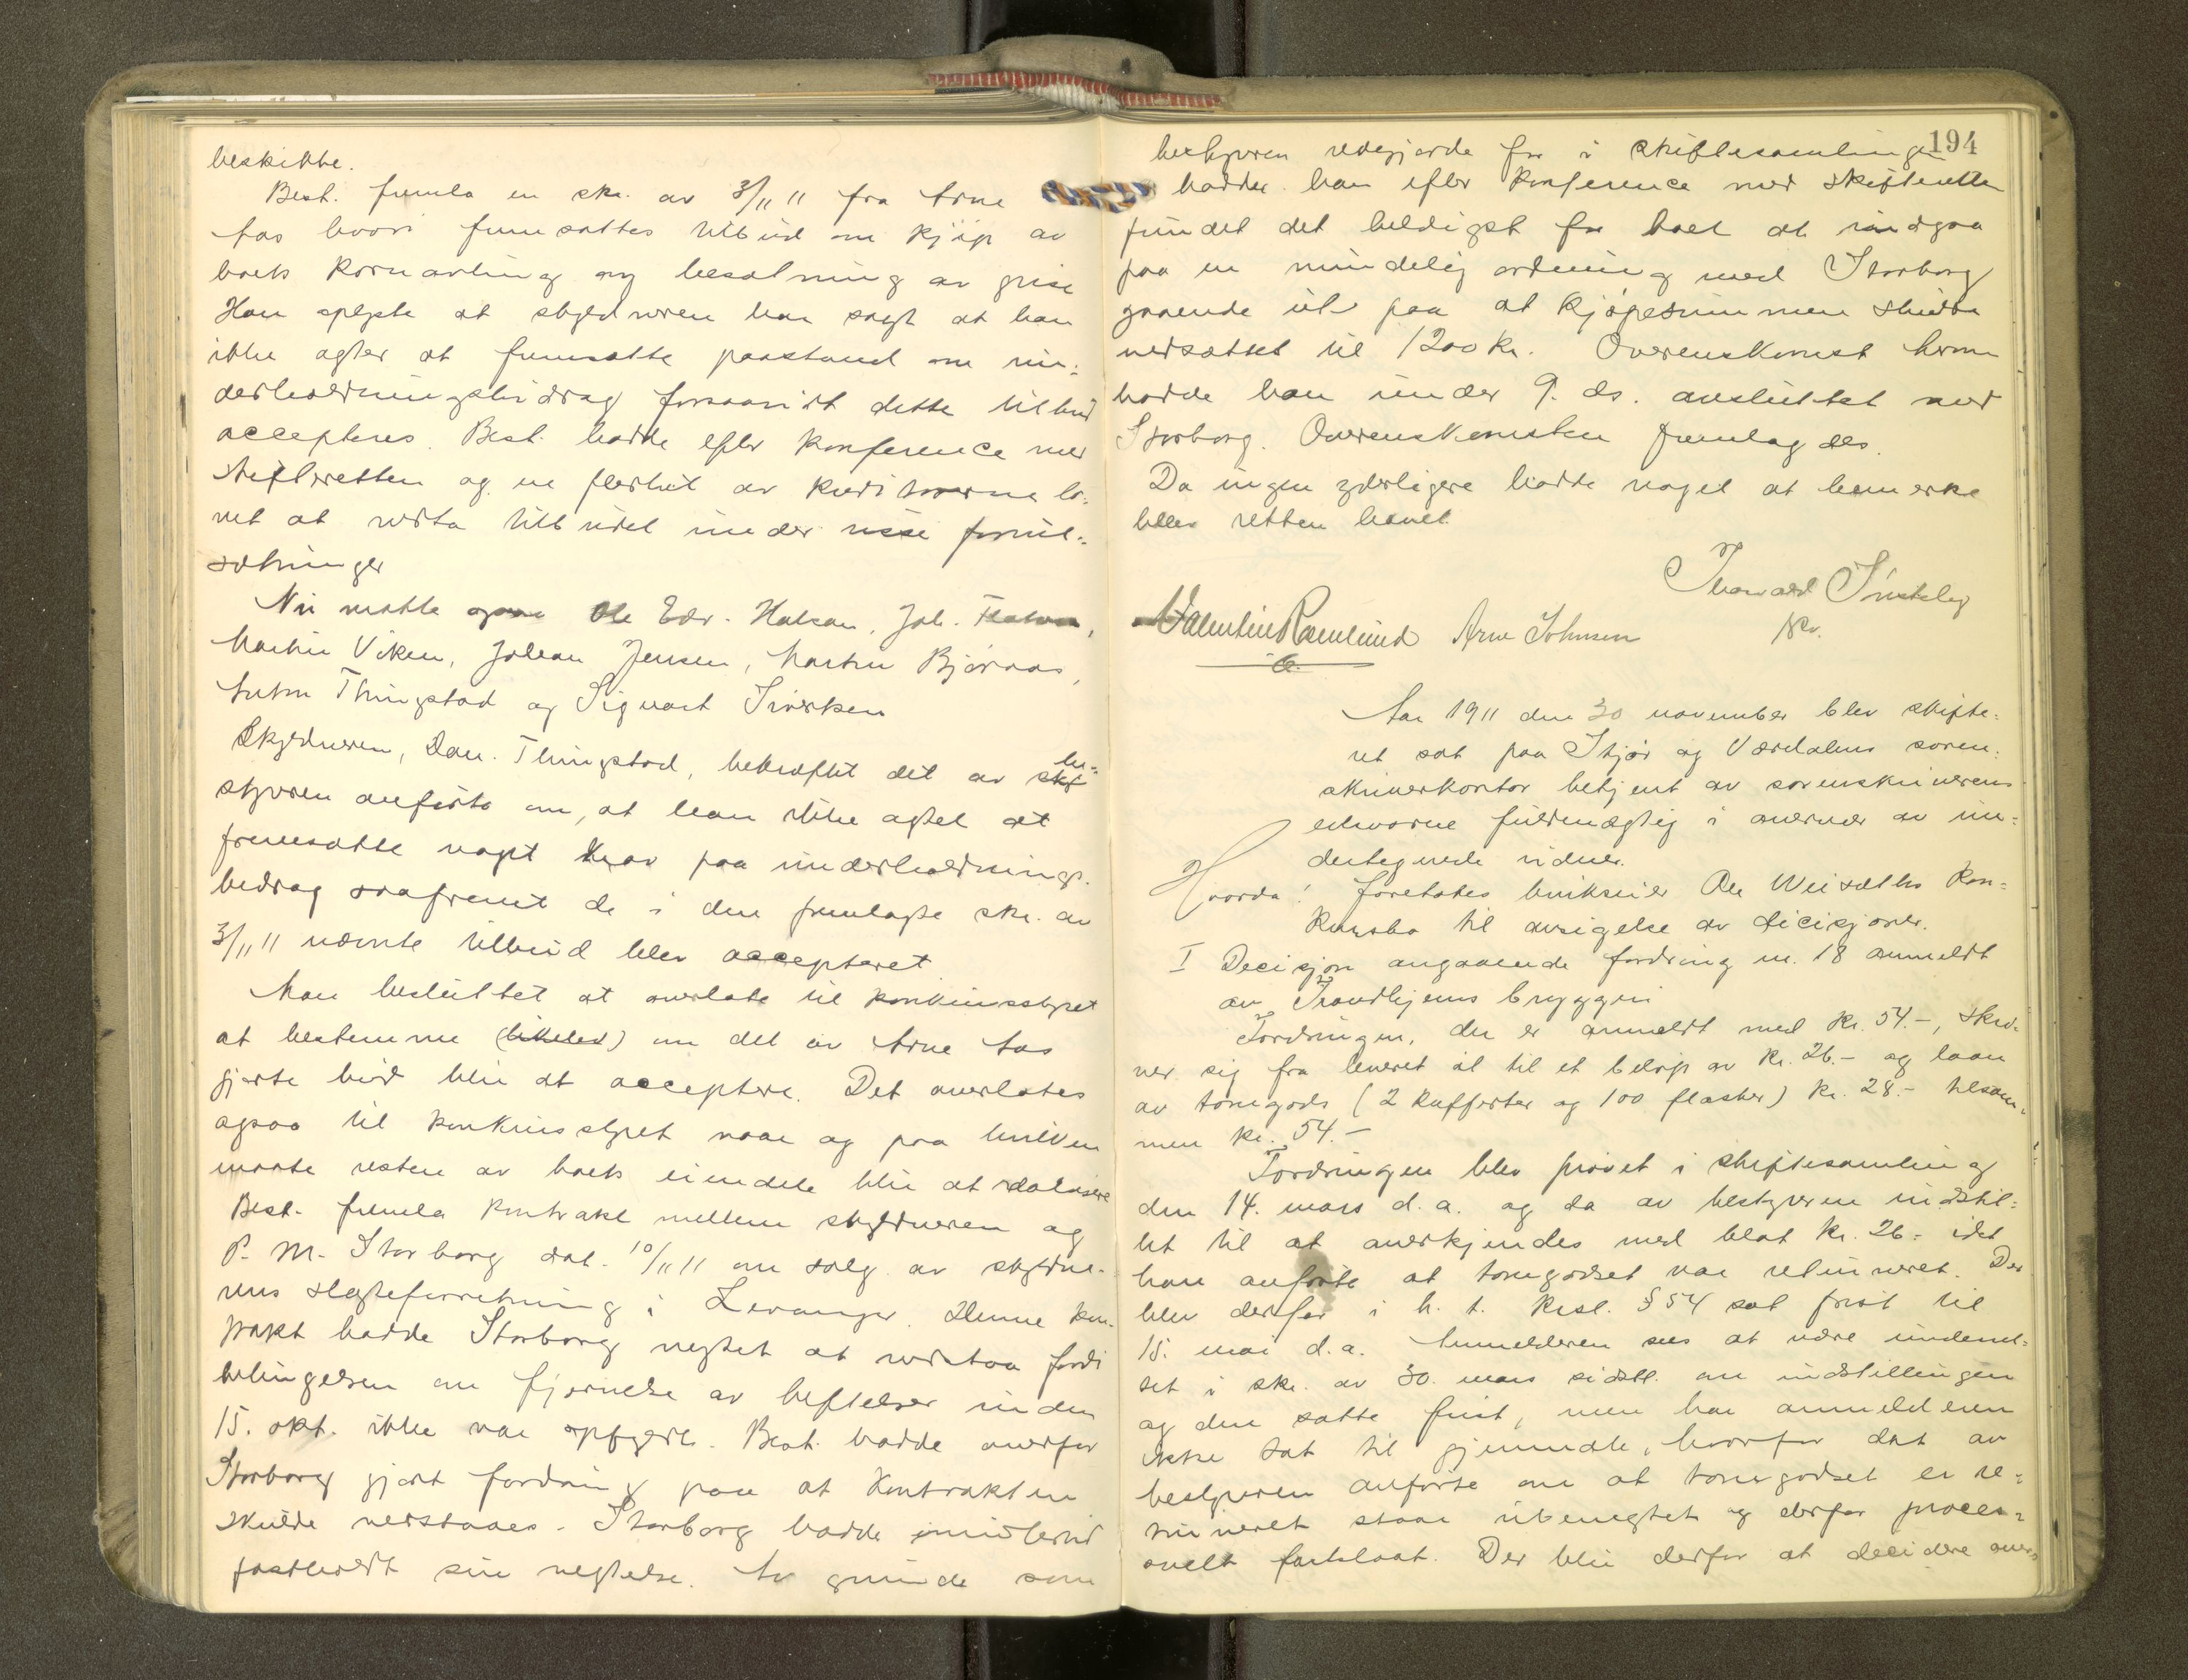 beskikke.
Best. fremla en skr. av 3/11 11 fra Arne
Aas hvori fremsattes tilbud om kjøp av
boets kornavling og besætning av grise
Han oplyste at skyldneren har sagt at han
ikke agter at fremsætte paastand om un-
derholdningsbidrag forsaavidt dette tilbud
accepteres. Best. hadde efter konference med
skifteretten og en flerhet av kreditorerne lo-
vet at vedta tilbudet under visse forut-
sætninger
Nu møtte Ole Edv. Halsan, Joh.
Martin Viken, Johan Jensen, Martin Bjørnaas,
Anton Thingstad og Sigvart Sivertsen
Skyldneren, Dan. Thingstad, bekræftet det av be-
styreren anførte om, at han ikke agtet at
fremsætte noget krav paa underholdnings-
bidrag saafremt de i den fremlagte skr. av
3/11 11 nævnte tilbud blev accepteret
Man besluttet at overlate til konkursstyret
at bestemme om det av Arne Aas
gjorte bud blir at acceptere. Det overlates
ogsaa til konkursstyret naar og paa hvilken
maate resten av boets eiendele blir at realisere
Best. fremla kontrakt mellem skyldneren og
P. M. Storborg dat. 10/11 11 om salg av skyldne-
rens slagteforretning i Levanger. Denne kon-
trakt hadde Storborg negtet at vedstaa fordi
betingelsen om fjernelse av heftelser inden
15. okt. ikke var opfyldt. Best. hadde overfor
Storborg gjort fordring paa at kontrakten
skulde vedstaaes. Storborg hadde imidlertid
fastholdt sin negtelse. Av grunde som
194
bestyreren redegjorde for i skiftesamlingen
hadde han efter konference med skifteretten
fundet det heldigst for boet at indgaa
paa en mindelig ordning med Storborg
gaaende ut paa at kjøpesummen skulde
nedsættes til 1200 kr. Overenskomst herom
hadde han under 9. ds. avsluttet med
Storborg. Overenskomsten fremlagdes.
Da ingen yderligere hadde noget at bemerke
blev retten hævet.
Thorvald
Valentin Ramlund Arne Johnsen
Aar 1911 den 30 november blev skifte-
ret sat paa Stjør og Værdalens soren-
skriverkontor betjent av sorenskriverens
edsvorne fuldmægtig i overvær av un-
dertegnede vidner.
Hvorda: foretokes bruker Ole Weisæths kon-
kursbo til avsigelse av decisjoner.
I Decisjon angaaende fordring nr. 18 anmeldt
av Trondhjems bryggeri
Fordringen, der er anmeldt med kr. 54.-, skri-
ver sig fra leveret øl til et beløp av kr. 26.- og laan
av tomgods (2 kufferter og 100 flasker) kr. 28.- tilsam-
men kr. 54.-
Fordringen blev prøvet i skiftesamling
den 14. mars d.a. og da av bestyreren indstil-
let til at anerkjendes med blot kr. 26.- idet
han anførte at tomgodset var returneret. Der
blev derfor i h. t. krsl. § 54 sat frist til
15. mai d.a. Anmelderen sees at være underret-
tet i skr. av 30. mars sidstl. om indstillingen
og den satte frist, men har anmelderen
ikke tat til gjenmæle, hvorfor det av
bestyreren anførte om at tomgodset er re-
turneret staar ubenegtet og derfor proces-
suelt fastslaat. Der blir derfor at decidere overens-